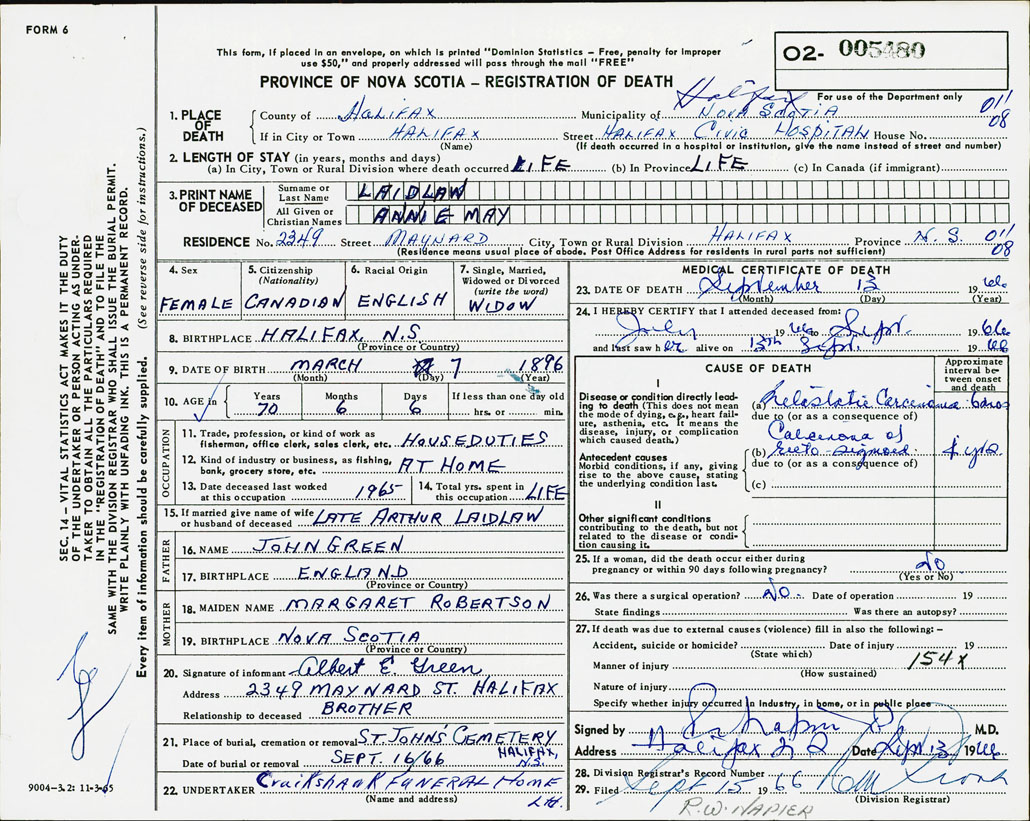 FORM 6
This form, if placed in an envelope, on which is printed "Dominion Statistics – Free, penalty for improper
use $50," and properly addressed will pass through the mail "FREE"
O2- 005480
PROVINCE OF NOVA SCOTIA – REGISTRATION OF DEATH
For use of the Department only
Halifax
011
08
1. PLACE OF DEATH
County of HALIFAX Municipality of NOVA SCOTIA
If in City or Town HALIFAX Street HALIFAX CIVIC HOSPITAL House No.
(Name) (If death occurred in a hospital or institution, give the name instead of street and number)
2. LENGTH OF STAY (in years, months and days)
(a) In City, Town or Rural Division where death occurred LIFE (b) In Province LIFE (c) In Canada (if immigrant)
3. PRINT NAME OF DECEASED
Surname or Last Name LAIDLAW
All Given or Christian Names ANNIE MAY
RESIDENCE No. 2349 Street MAYNARD City, Town or Rural Division HALIFAX Province N.S. 011
08
(Residence means usual place of abode. Post Office Address for residents in rural parts not sufficient)
4. Sex
FEMALE
5. Citizenship
(Nationality)
CANADIAN
6. Racial Origin
ENGLISH
7. Single, Married,
Widowed or Divorced
(write the word)
WIDOW
8. BIRTHPLACE HALIFAX, N.S.
(Province or Country)
9. DATE OF BIRTH MARCH 7 1896
(Month) (Day) (Year)
10. AGE in
Years Months Days If less than one day old
70 6 6 hrs. or min.
OCCUPATION
11. Trade, profession, or kind of work as
fisherman, office clerk, sales clerk, etc. HOUSEDUTIES
12. Kind of industry or business, as fishing,
bank, grocery store, etc. AT HOME
13. Date deceased last worked
at this occupation 1965
14. Total yrs. spent in
this occupation LIFE
15. If married give name of wife
or husband of deceased LATE ARTHUR LAIDLAW
FATHER
16. NAME JOHN GREEN
17. BIRTHPLACE ENGLAND
(Province or Country)
MOTHER
18. MAIDEN NAME MARGARET ROBERTSON
19. BIRTHPLACE NOVA SCOTIA
(Province or Country)
20. Signature of informant Albert E. Green
Address 2349 MAYNARD ST. HALIFAX
Relationship to deceased BROTHER
21. Place of burial, cremation or removal ST JOHN'S CEMETERY
HALIFAX, N.S.
Date of burial or removal SEPT. 16/66
22. UNDERTAKER Cruikshank FUNERAL HOME Ltd.
(Name and address)
MEDICAL CERTIFICATE OF DEATH
23. DATE OF DEATH September 13 1966
(Month) (Day) (Year)
24. I HEREBY CERTIFY that I attended deceased from:
July 1966 to Sept. 1966
and last saw her alive on 13th Sept. 1966
CAUSE OF DEATH
Approximate interval between onset and death
I
Disease or condition directly leading to death (This does not mean the mode of dying, e.g., heart failure, asthenia, etc. It means the disease, injury, or complication which caused death.)
(a) Metastatic Carcinoma 6 mos
due to (or as a consequence of)
Antecedent causes
Morbid conditions, if any, giving rise to the above cause, stating the underlying condition last.
Carcinoma of
(b) recto sigmoid yrs
due to (or as a consequence of)
(c)
II
Other significant conditions
contributing to the death, but not related to the disease or condition causing it.
25. If a woman, did the death occur either during
pregnancy or within 90 days following pregnancy? No
(Yes or No)
26. Was there a surgical operation? No Date of operation 19
State findings Was there an autopsy?
27. If death was due to external causes (violence) fill in also the following: –
Accident, suicide or homicide? Date of injury 19
(State which)
154X
Manner of injury
(How sustained)
Nature of injury
Specify whether injury occurred in industry, in home, or in public place
Signed by M.D.
Address Halifax N S Date Sept 13 1966
28. Division Registrar's Record Number
29. Filed Sept 15 1966
(Division Registrar)
R.W. NAPIER
SEC. 14 – VITAL STATISTICS ACT MAKES IT THE DUTY
OF THE UNDERTAKER OR PERSON ACTING AS UNDER-
TAKER TO OBTAIN ALL THE PARTICULARS REQUIRED
IN THE "REGISTRATION OF DEATH" AND TO FILE THE
SAME WITH THE DIVISION REGISTRAR WHO SHALL ISSUE THE BURIAL PERMIT.
WRITE PLAINLY WITH UNFADING INK. THIS IS A PERMANENT RECORD.
Every item of information should be carefully supplied. (See reverse side for instructions.)
9004-3.2: 11-3-65